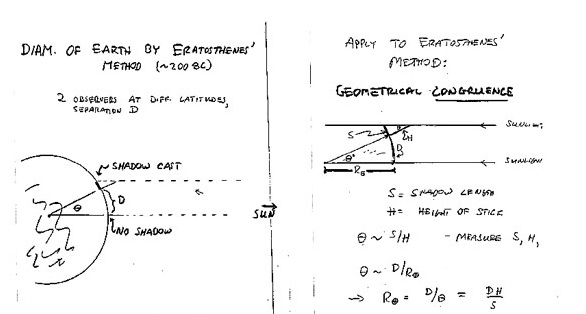 DIAM. OF EARTH BY ERATOSTHENES'
METHOD (~200 BC)
2 OBSERVERS AT DIFF. LATITUDES,
SEPARATION D
SHADOW CAST
D
θ
NO SHADOW
SUN
APPLY TO ERATOSTHENES'
METHOD:
GEOMETRICAL CONGRUENCE
S
θ
H
SUNLIGHT
D
θ
SUNLIGHT
R⊕
S = SHADOW LENGTH
H = HEIGHT OF STICK
θ ~ S/H - MEASURE S, H,
θ ~ D/R⊕
→ R⊕ = D/θ = DH/S